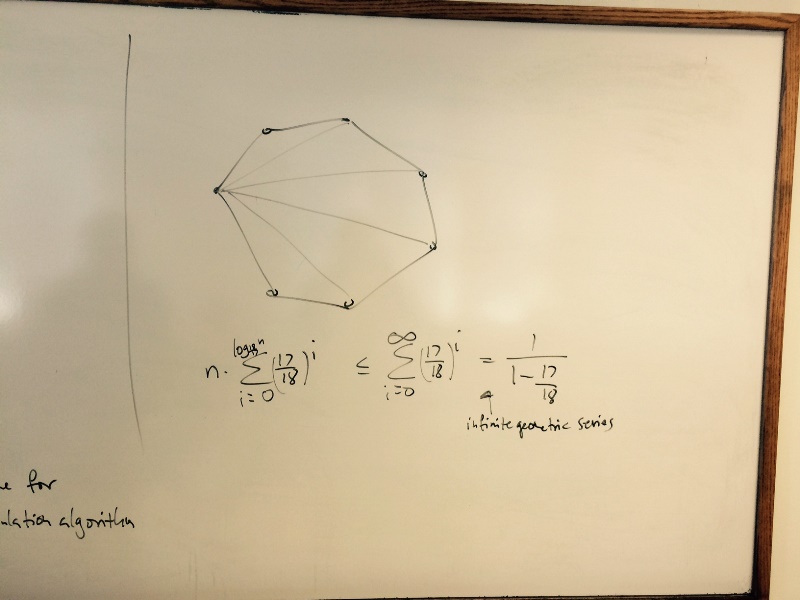 n · \sum_{i=0}^{log_{18} n} (17/18)^i ≤ \sum_{i=0}^{∞} (17/18)^i = 1 / (1 - 17/18)
infinite geometric series
for
algorithm